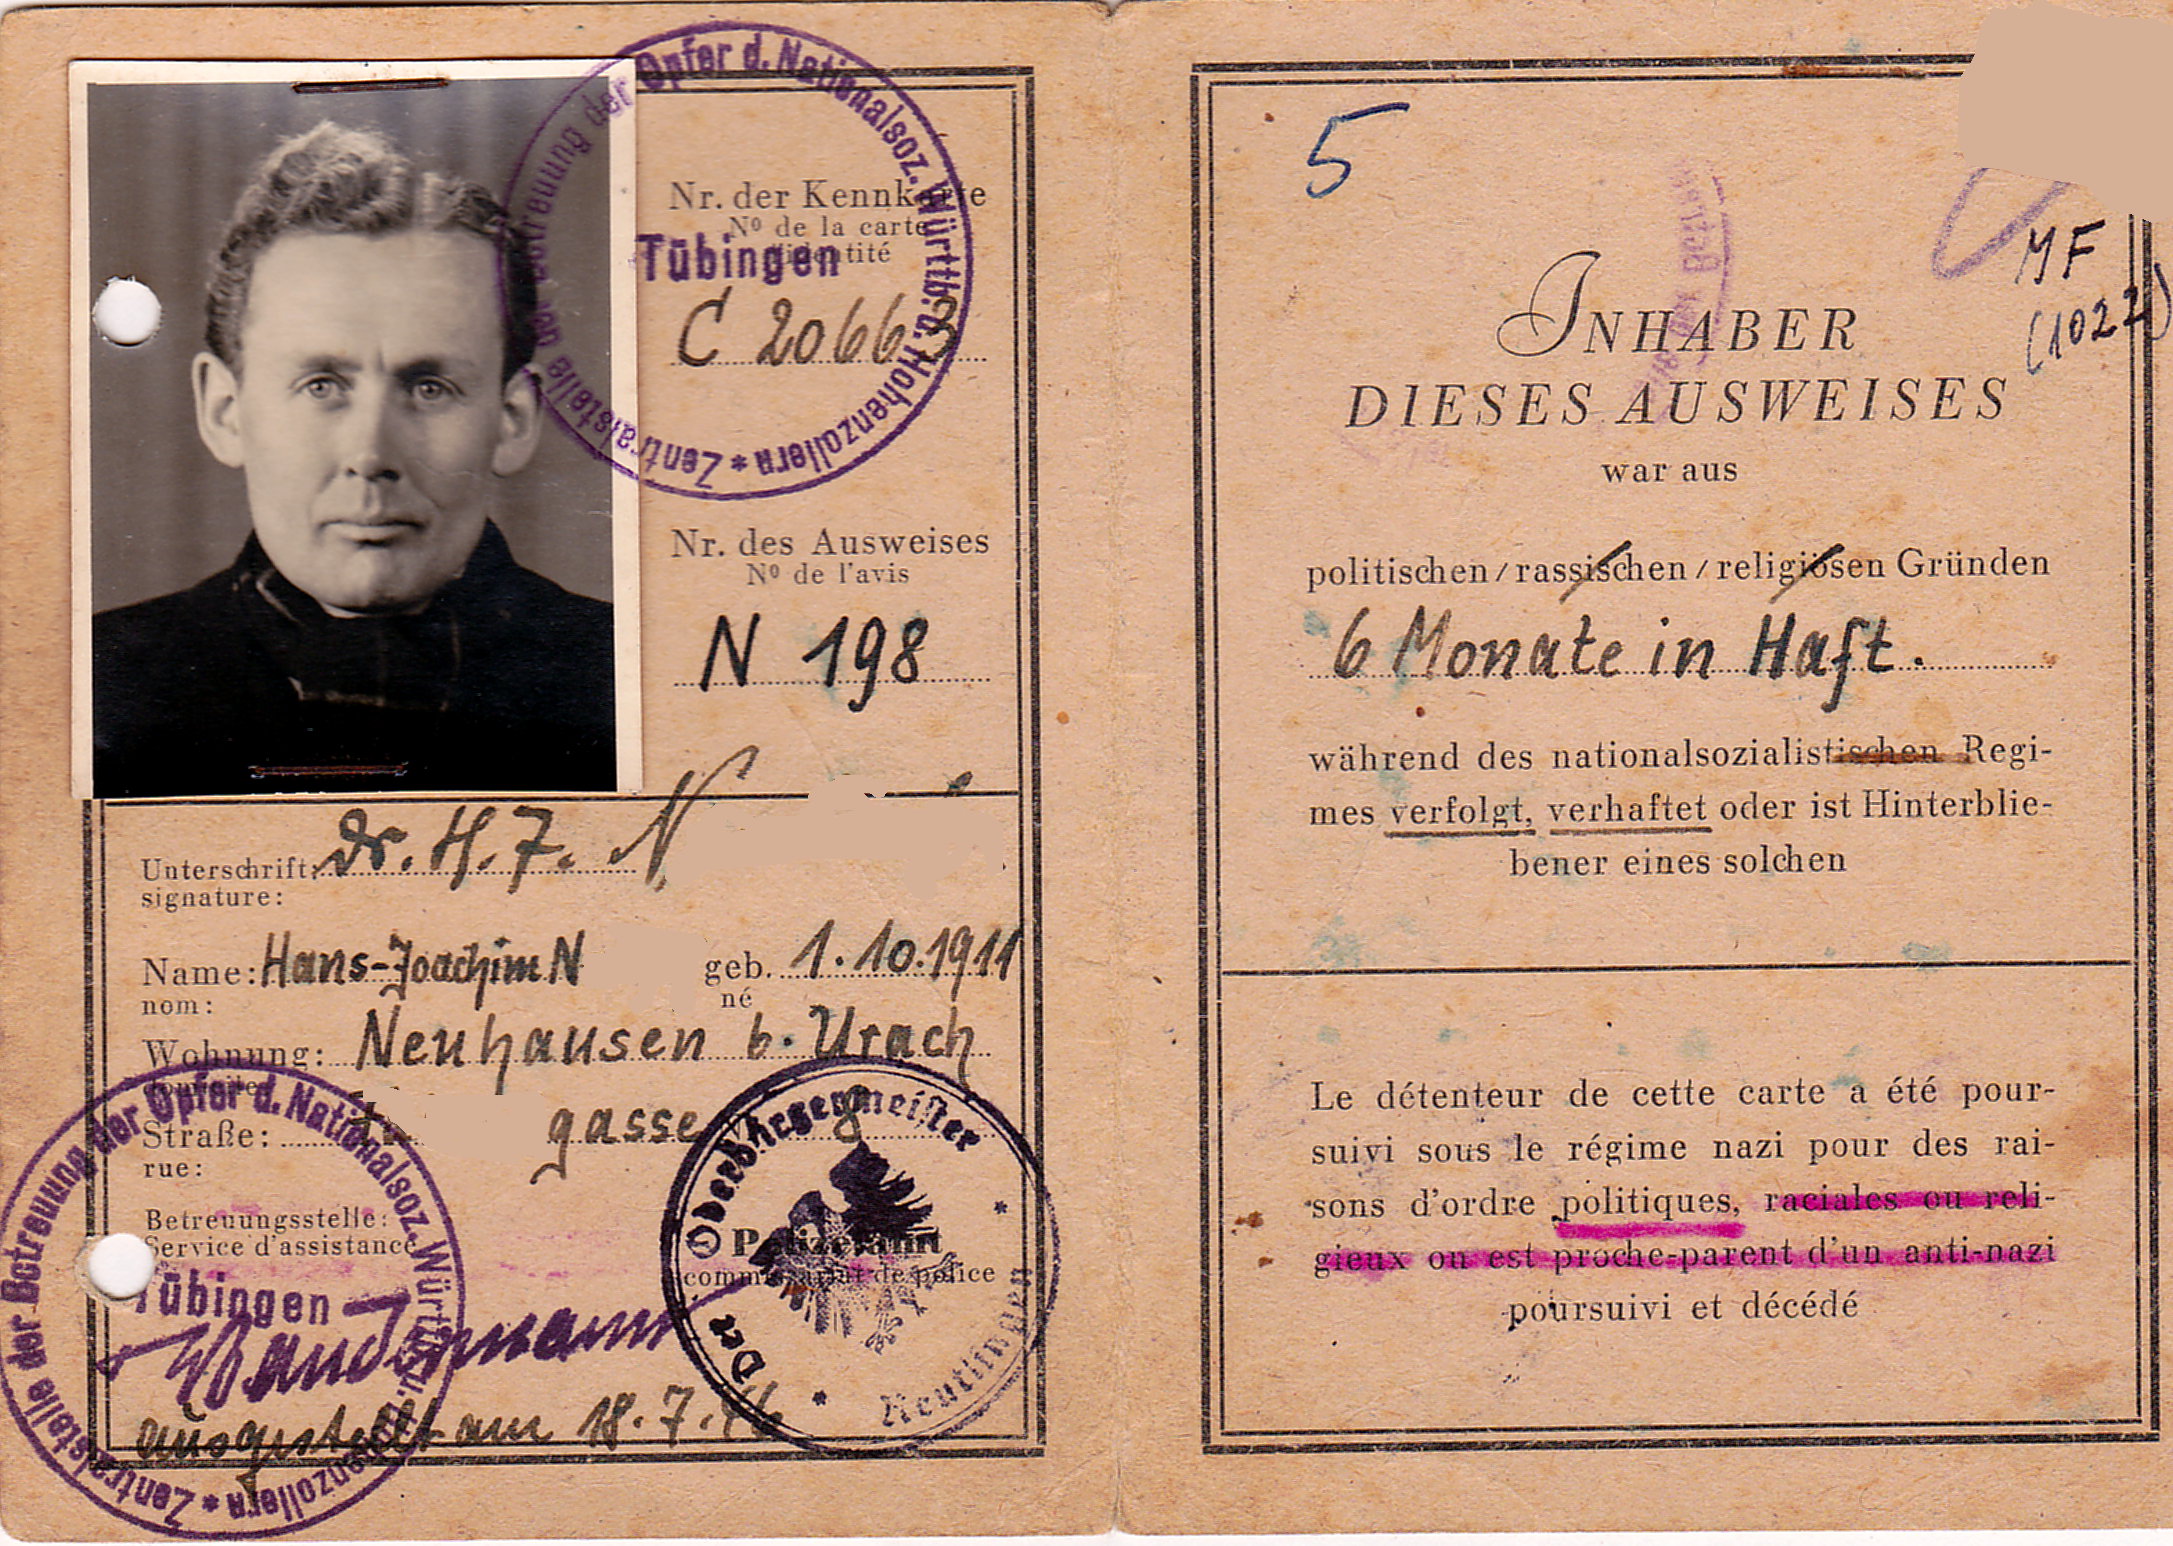 Zentralstelle der Betreuung der Opfer d. Nationalsoz. Württb. u. Hohenzollern *
Tübingen
Nr. der Kennkarte
Nº de la carte
d'identité
C 20663
Nr. des Ausweises
Nº de l'avis
N 198
Unterschrift: Dr. H. J. N
signature:
Name: Hans-Joachim N geb. 1.10.1911
nom: né
Wohnung: Neuhausen b. Urach
domicile
Straße: gasse 8
rue:
Betreuungsstelle:
Service d'assistance
Polizeiamt
commissariat de police
Zentralstelle der Betreuung der Opfer d. Nationalsoz. Württb. u. Hohenzollern *
Tübingen
Der Oberbürgermeister * Reutlingen *
ausgestellt am 18.7.46
5
MF
(1022)
INHABER
DIESES AUSWEISES
war aus
politischen / rassischen / religiösen Gründen
6 Monate in Haft.
während des nationalsozialistischen Regi-
mes verfolgt, verhaftet oder ist Hinterblie-
bener eines solchen
Le détenteur de cette carte a été pour-
suivi sous le régime nazi pour des rai-
sons d'ordre politiques, raciales ou reli-
gieux ou est proche-parent d'un anti-nazi
poursuivi et décédé